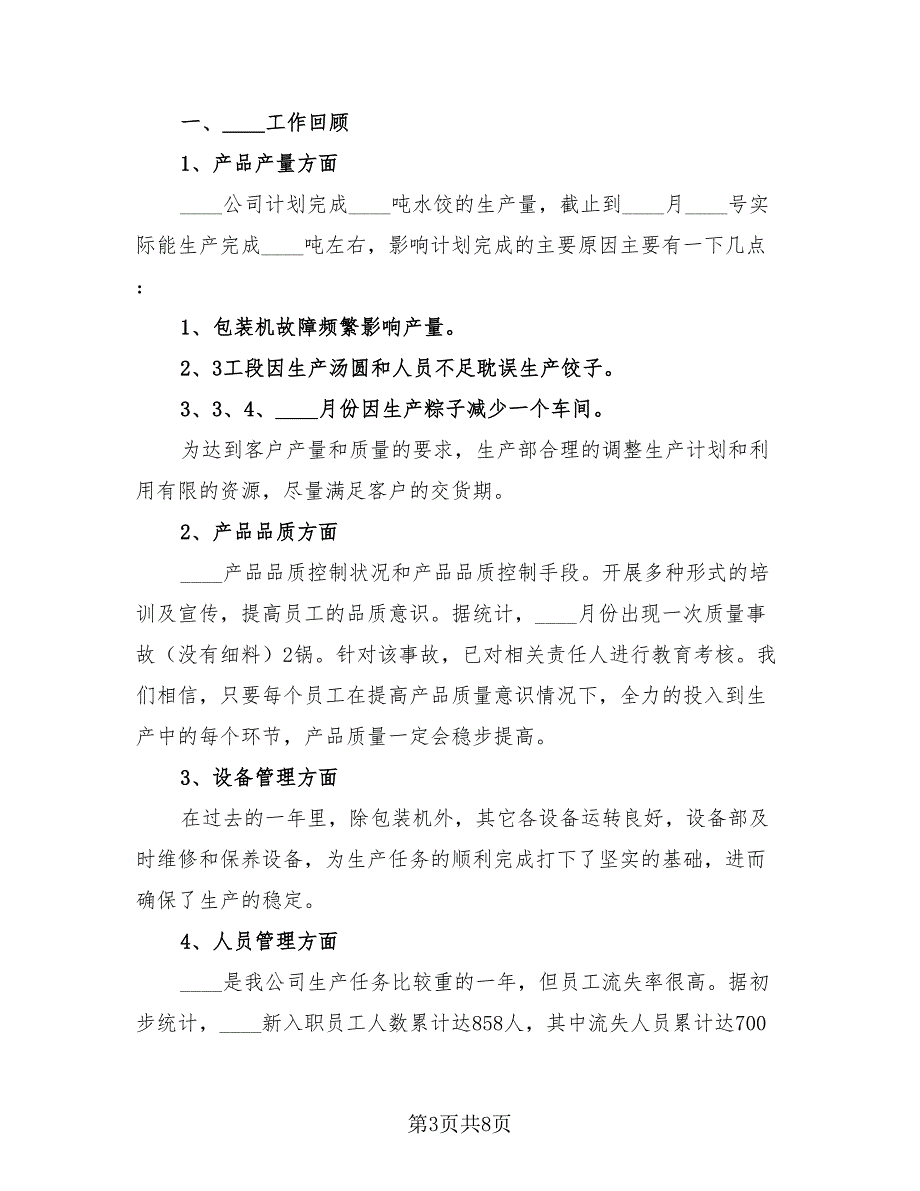 一、____工作回顾
1、产品产量方面
____公司计划完成____吨水饺的生产量，截止到____月____号实
际能生产完成____吨左右，影响计划完成的主要原因主要有一下几点
：
1、包装机故障频繁影响产量。
2、3工段因生产汤圆和人员不足耽误生产饺子。
3、3、4、____月份因生产粽子减少一个车间。
为达到客户产量和质量的要求，生产部合理的调整生产计划和利
用有限的资源，尽量满足客户的交货期。
2、产品品质方面
____产品品质控制状况和产品品质控制手段。开展多种形式的培
训及宣传，提高员工的品质意识。据统计，____月份出现一次质量事
故（没有细料）2锅。针对该事故，已对相关责任人进行教育考核。我
们相信，只要每个员工在提高产品质量意识情况下，全力的投入到生
产中的每个环节，产品质量一定会稳步提高。
3、设备管理方面
在过去的一年里，除包装机外，其它各设备运转良好，设备部及
时维修和保养设备，为生产任务的顺利完成打下了坚实的基础，进而
确保了生产的稳定。
4、人员管理方面
____是我公司生产任务比较重的一年，但员工流失率很高。据初
步统计，____新入职员工人数累计达858人，其中流失人员累计达700
第3页共8页